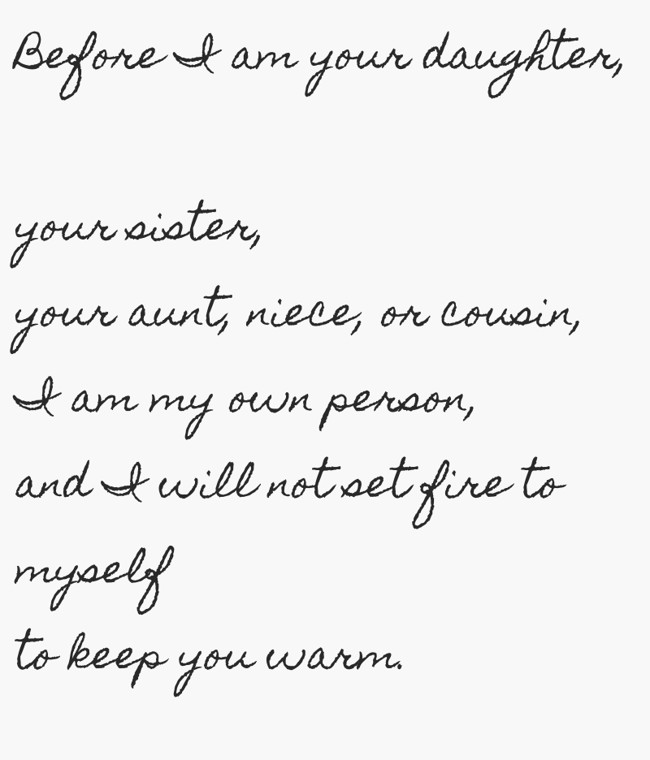 Before I am your daughter,
your sister,
your aunt, niece, or cousin,
I am my own person,
and I will not set fire to
myself
to keep you warm.